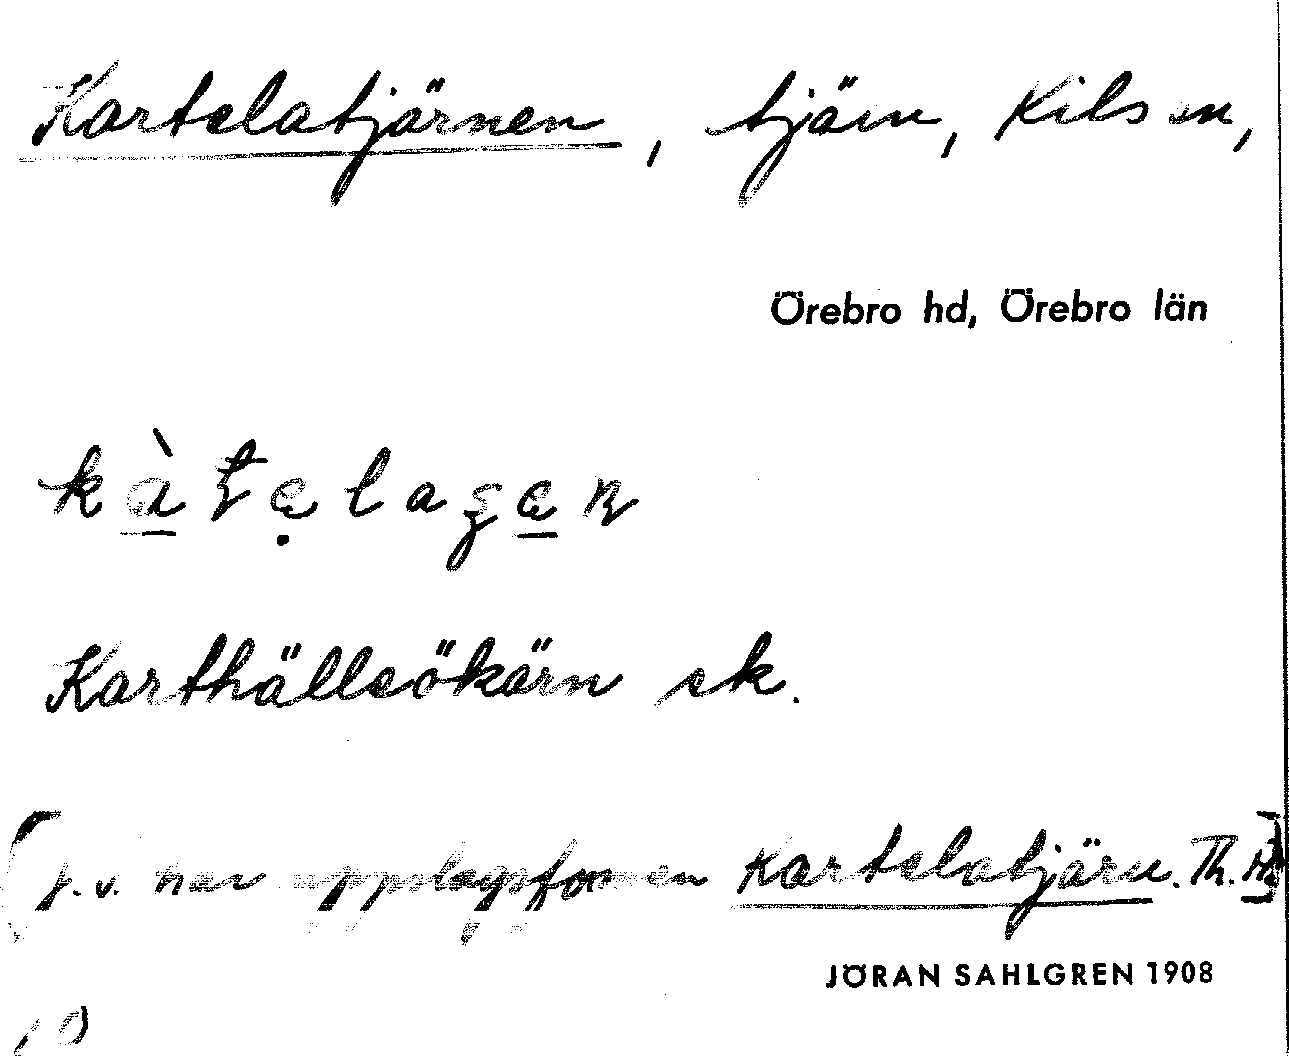 Kartelatjärnen, tjärn, Kilsn,
Örebro hd, Örebro län
Karthällsökärn sk.
har uppslagsformen Kartelatjärn. Th.
JÖRAN SAHLGREN 1908